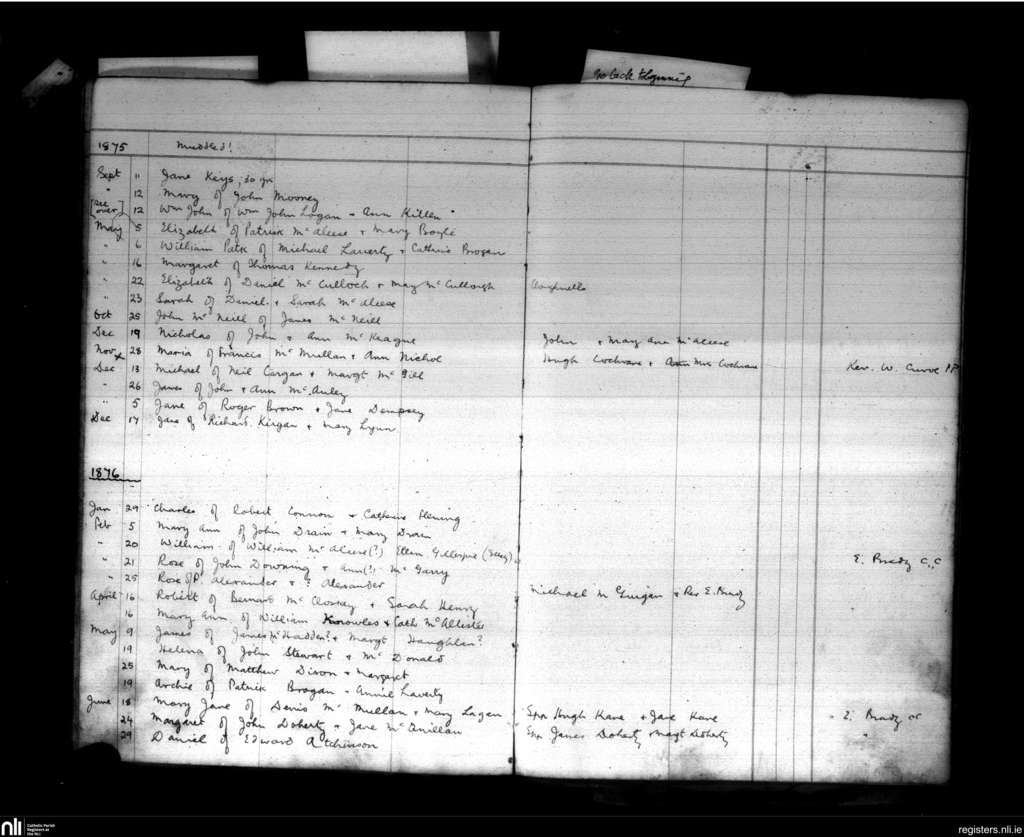 go back to Lynnis
1875 Muddled!
Sept 11 Jane Keys, 30 yrs
" 12 Mary of John Mooney
[see over] 12 Wm John of Wm John Logan + Ann Killen
May 5 Elizabeth of Patrick Mc Aleese + Mary Boyle
" 6 William Patk of Michael Laverty + Cathrine Brogan
" 16 Margaret of Thomas Kennedy
" 22 Elizabeth of Daniel Mc Culloch + May Mc Cullough
" 23 Sarah of Daniel + Sarah Mc Aleese
Oct 25 John Mc Neill of James Mc Neill
Dec 19 Nicholas of John + Ann Mc Keague John + Mary Ann McAleese
Nov 28 Maria of Francis Mc Mullan + Ann Nichol Hugh Cochrane + Mrs Cochrane Rev. W. Curoe PP
Dec 13 Michael of Neil Cargan + Margt Mc Gill
" 26 James of John + Ann Mc Auley
" 5 Jane of Roger Brown + Jane Dempsey
Dec 17 Jane of Richard Kirgan + Mary Lynn
1876
Jan 29 Charles of Robert Connon + Cathrine Fleming
Feb 5 Mary Ann of John Drain + Mary Drain
" 20 William of William Mc Aleese (?) Ellen Gillespie
" 21 Rose of John Downing + Ann (?) Mc Garry E. Brady C.C
" 25 Rose of P. Alexander + ? Alexander
April 16 Robert of Bernard Mc Closkey + Sarah Henry Michael Mc Guigan + Rev E. Brady
16 Mary Ann of William Knowles + Cath McAllister
May 9 James of James McFadden? + Margt Haughlan?
19 Helena of John Stewart + Mc Donald
25 Mary of Matthew Dixon + Margaret
19 Archie of Patrick Brogan - Annie Laverty
June 18 Mary Jane of Denis Mc Mullan + Mary Lagan Spn Hugh Kane + Jane Kane " E. Brady cc
24 Margaret of John Doherty + Jane McQuillan Spn James Doherty + Margt Doherty "
29 Daniel of Edward Atchinson
nli Catholic Parish Registers at the NLI
registers.nli.ie